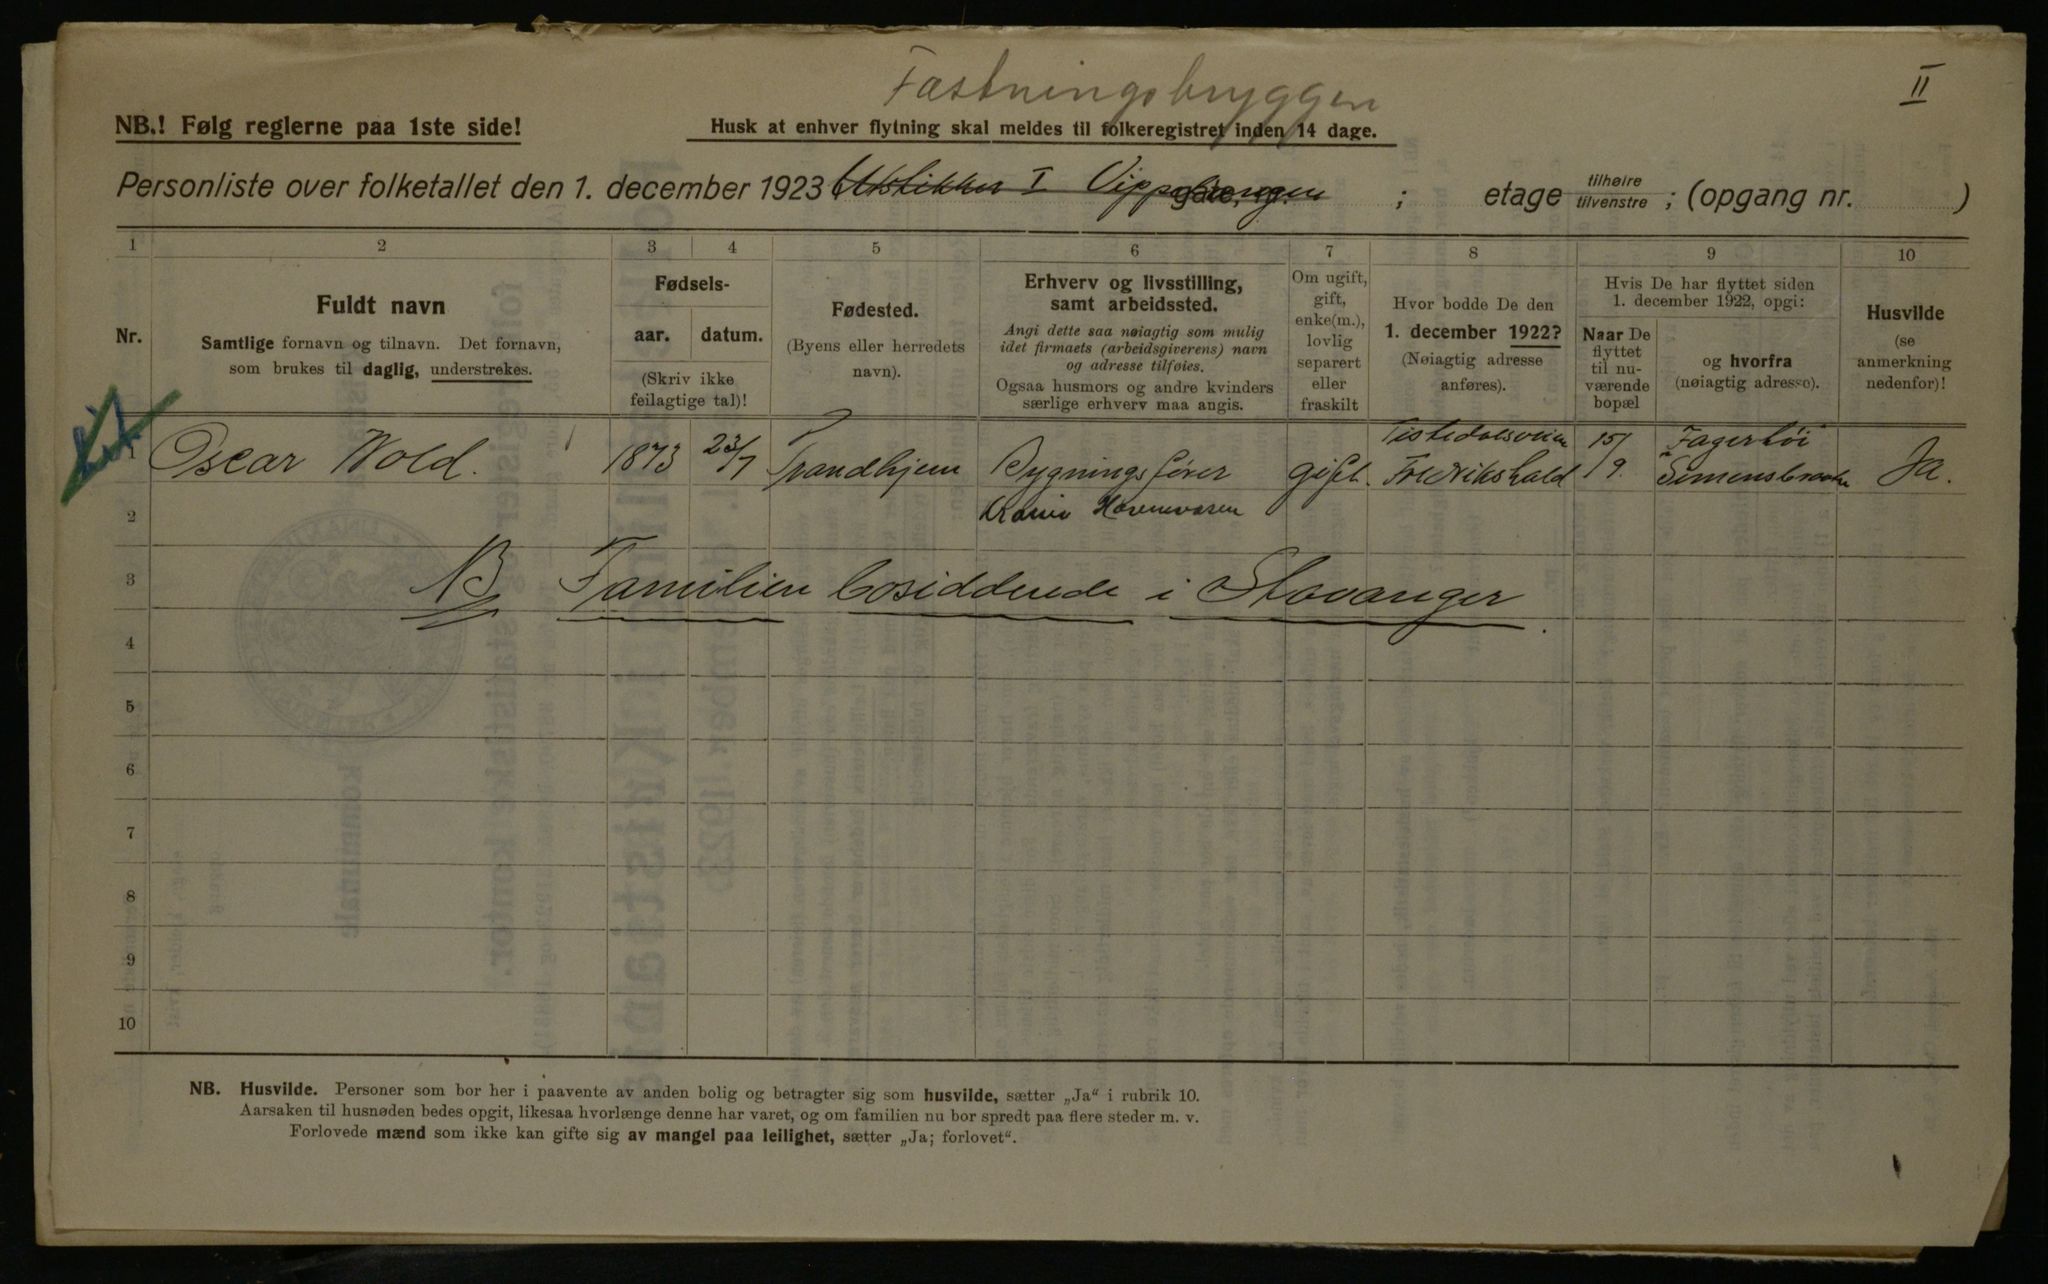 Fæstningsbryggen
II
NB.! Følg reglerne paa 1ste side!
Husk at enhver flytning skal meldes til folkeregistret inden 14 dage.
Personliste over folketallet den 1. december 1923 Utstikker I Vippetangen gate, nr. ; etage tilhøire tilvenstre ; (opgang nr. )
1 2 3 4 5 6 7 8 9 10
Nr.
Fuldt navn
Samtlige fornavn og tilnavn. Det fornavn,
som brukes til daglig, understrekes.
Fødsels-
aar. datum.
(Skriv ikke
feilagtige tal)!
Fødested.
(Byens eller herredets
navn).
Erhverv og livsstilling,
samt arbeidssted.
Angi dette saa nøiagtig som mulig
idet firmaets (arbeidsgiverens) navn
og adresse tilføies.
Ogsaa husmors og andre kvinders
særlige erhverv maa angis.
Om ugift,
gift,
enke(m.),
lovlig
separert
eller
fraskilt
Hvor bodde De den
1. december 1922?
(Nøiagtig adresse
anføres).
Hvis De har flyttet siden
1. december 1922, opgi:
Naar De
flyttet
til nu-
værende
bopæl
og hvorfra
(nøiagtig adresse).
Husvilde
(se
anmerkning
nedenfor)!
1 Oscar Wold. 1873 23/7 Trondhjem Bygningsfører gift. Tistedalsveien Fredrikshald 15/9. Simensbraaten Ja.
2 Havnevæsen
3 NB Familien bosiddende i Stavanger.
4
5
6
7
8
9
10
NB. Husvilde. Personer som bor her i paavente av anden bolig og betragter sig som husvilde, sætter „Ja“ i rubrik 10.
Aarsaken til husnøden bedes opgit, likesaa hvorlænge denne har varet, og om familien nu bor spredt paa flere steder m. v.
Forlovede mænd som ikke kan gifte sig av mangel paa leilighet, sætter „Ja; forlovet“.